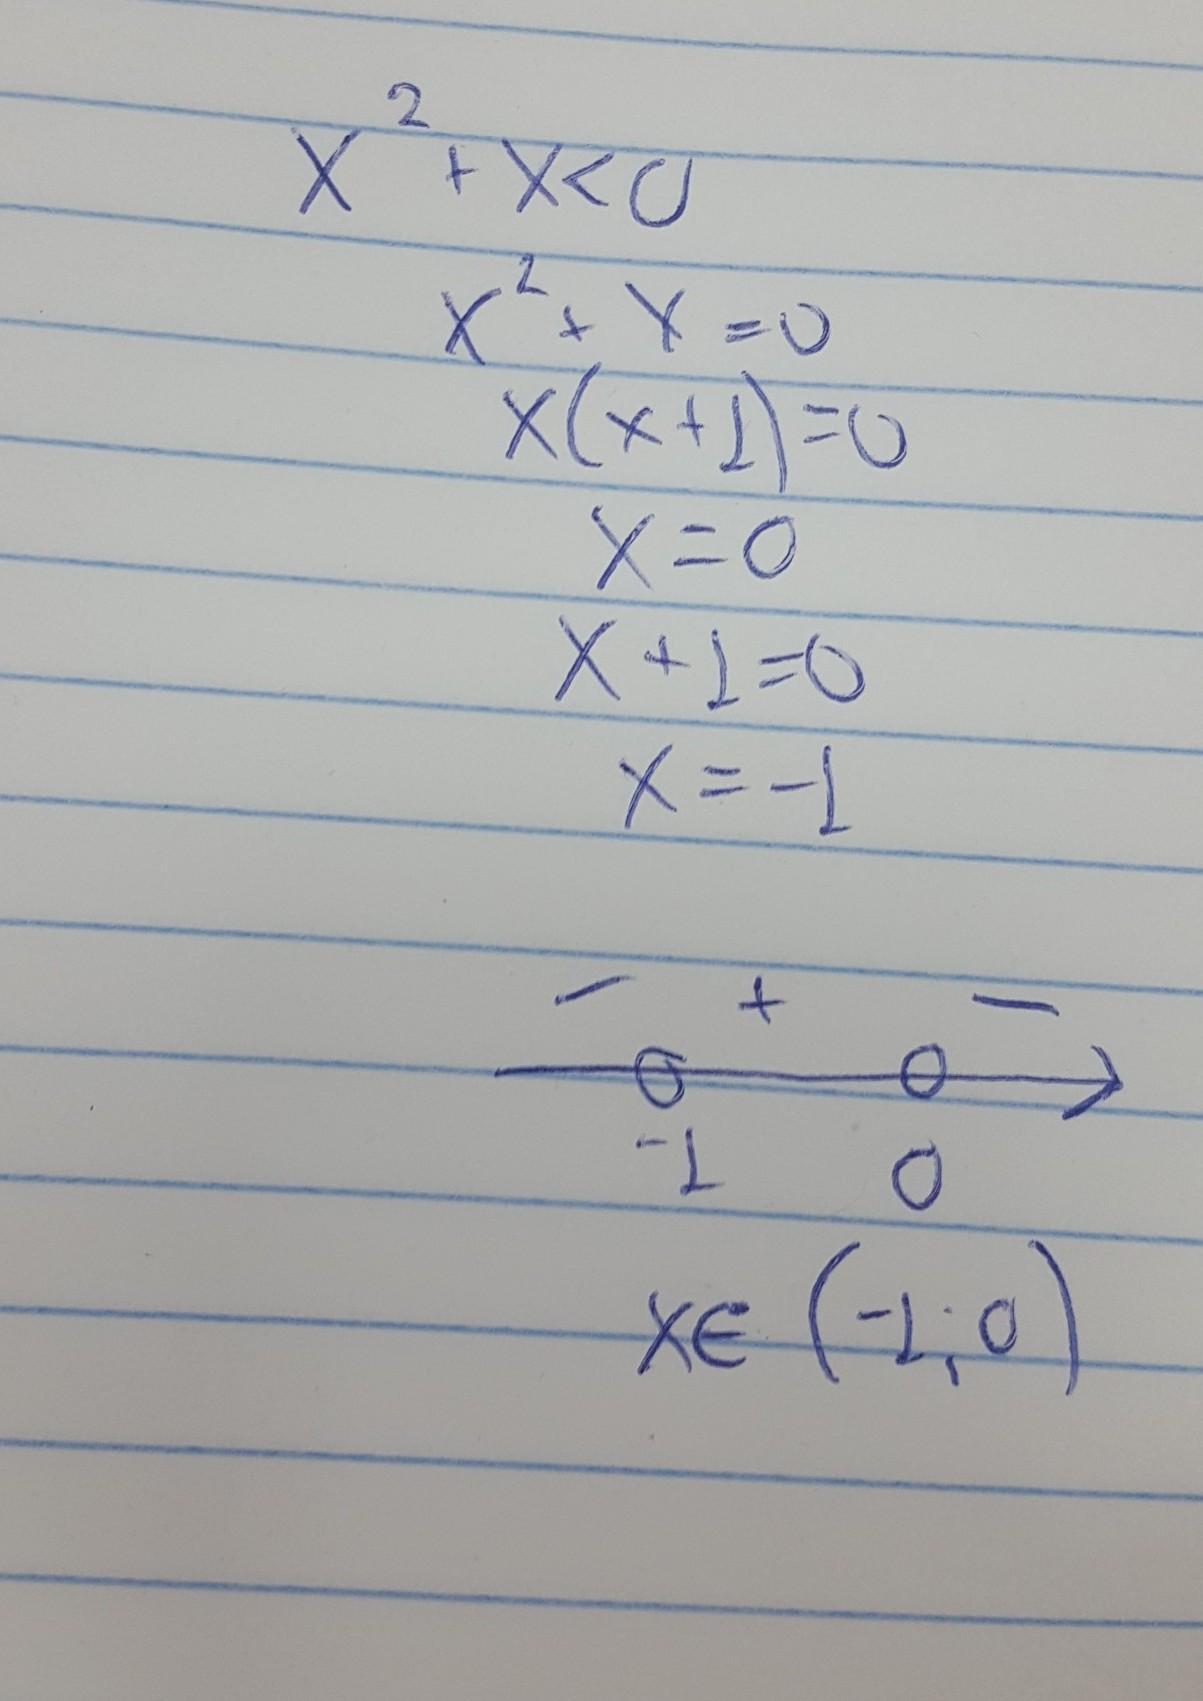 x² + x < 0
x² + x = 0
x(x+1) = 0
x = 0
x + 1 = 0
x = -1
- + -
-1 0
x∈ (-1; 0)